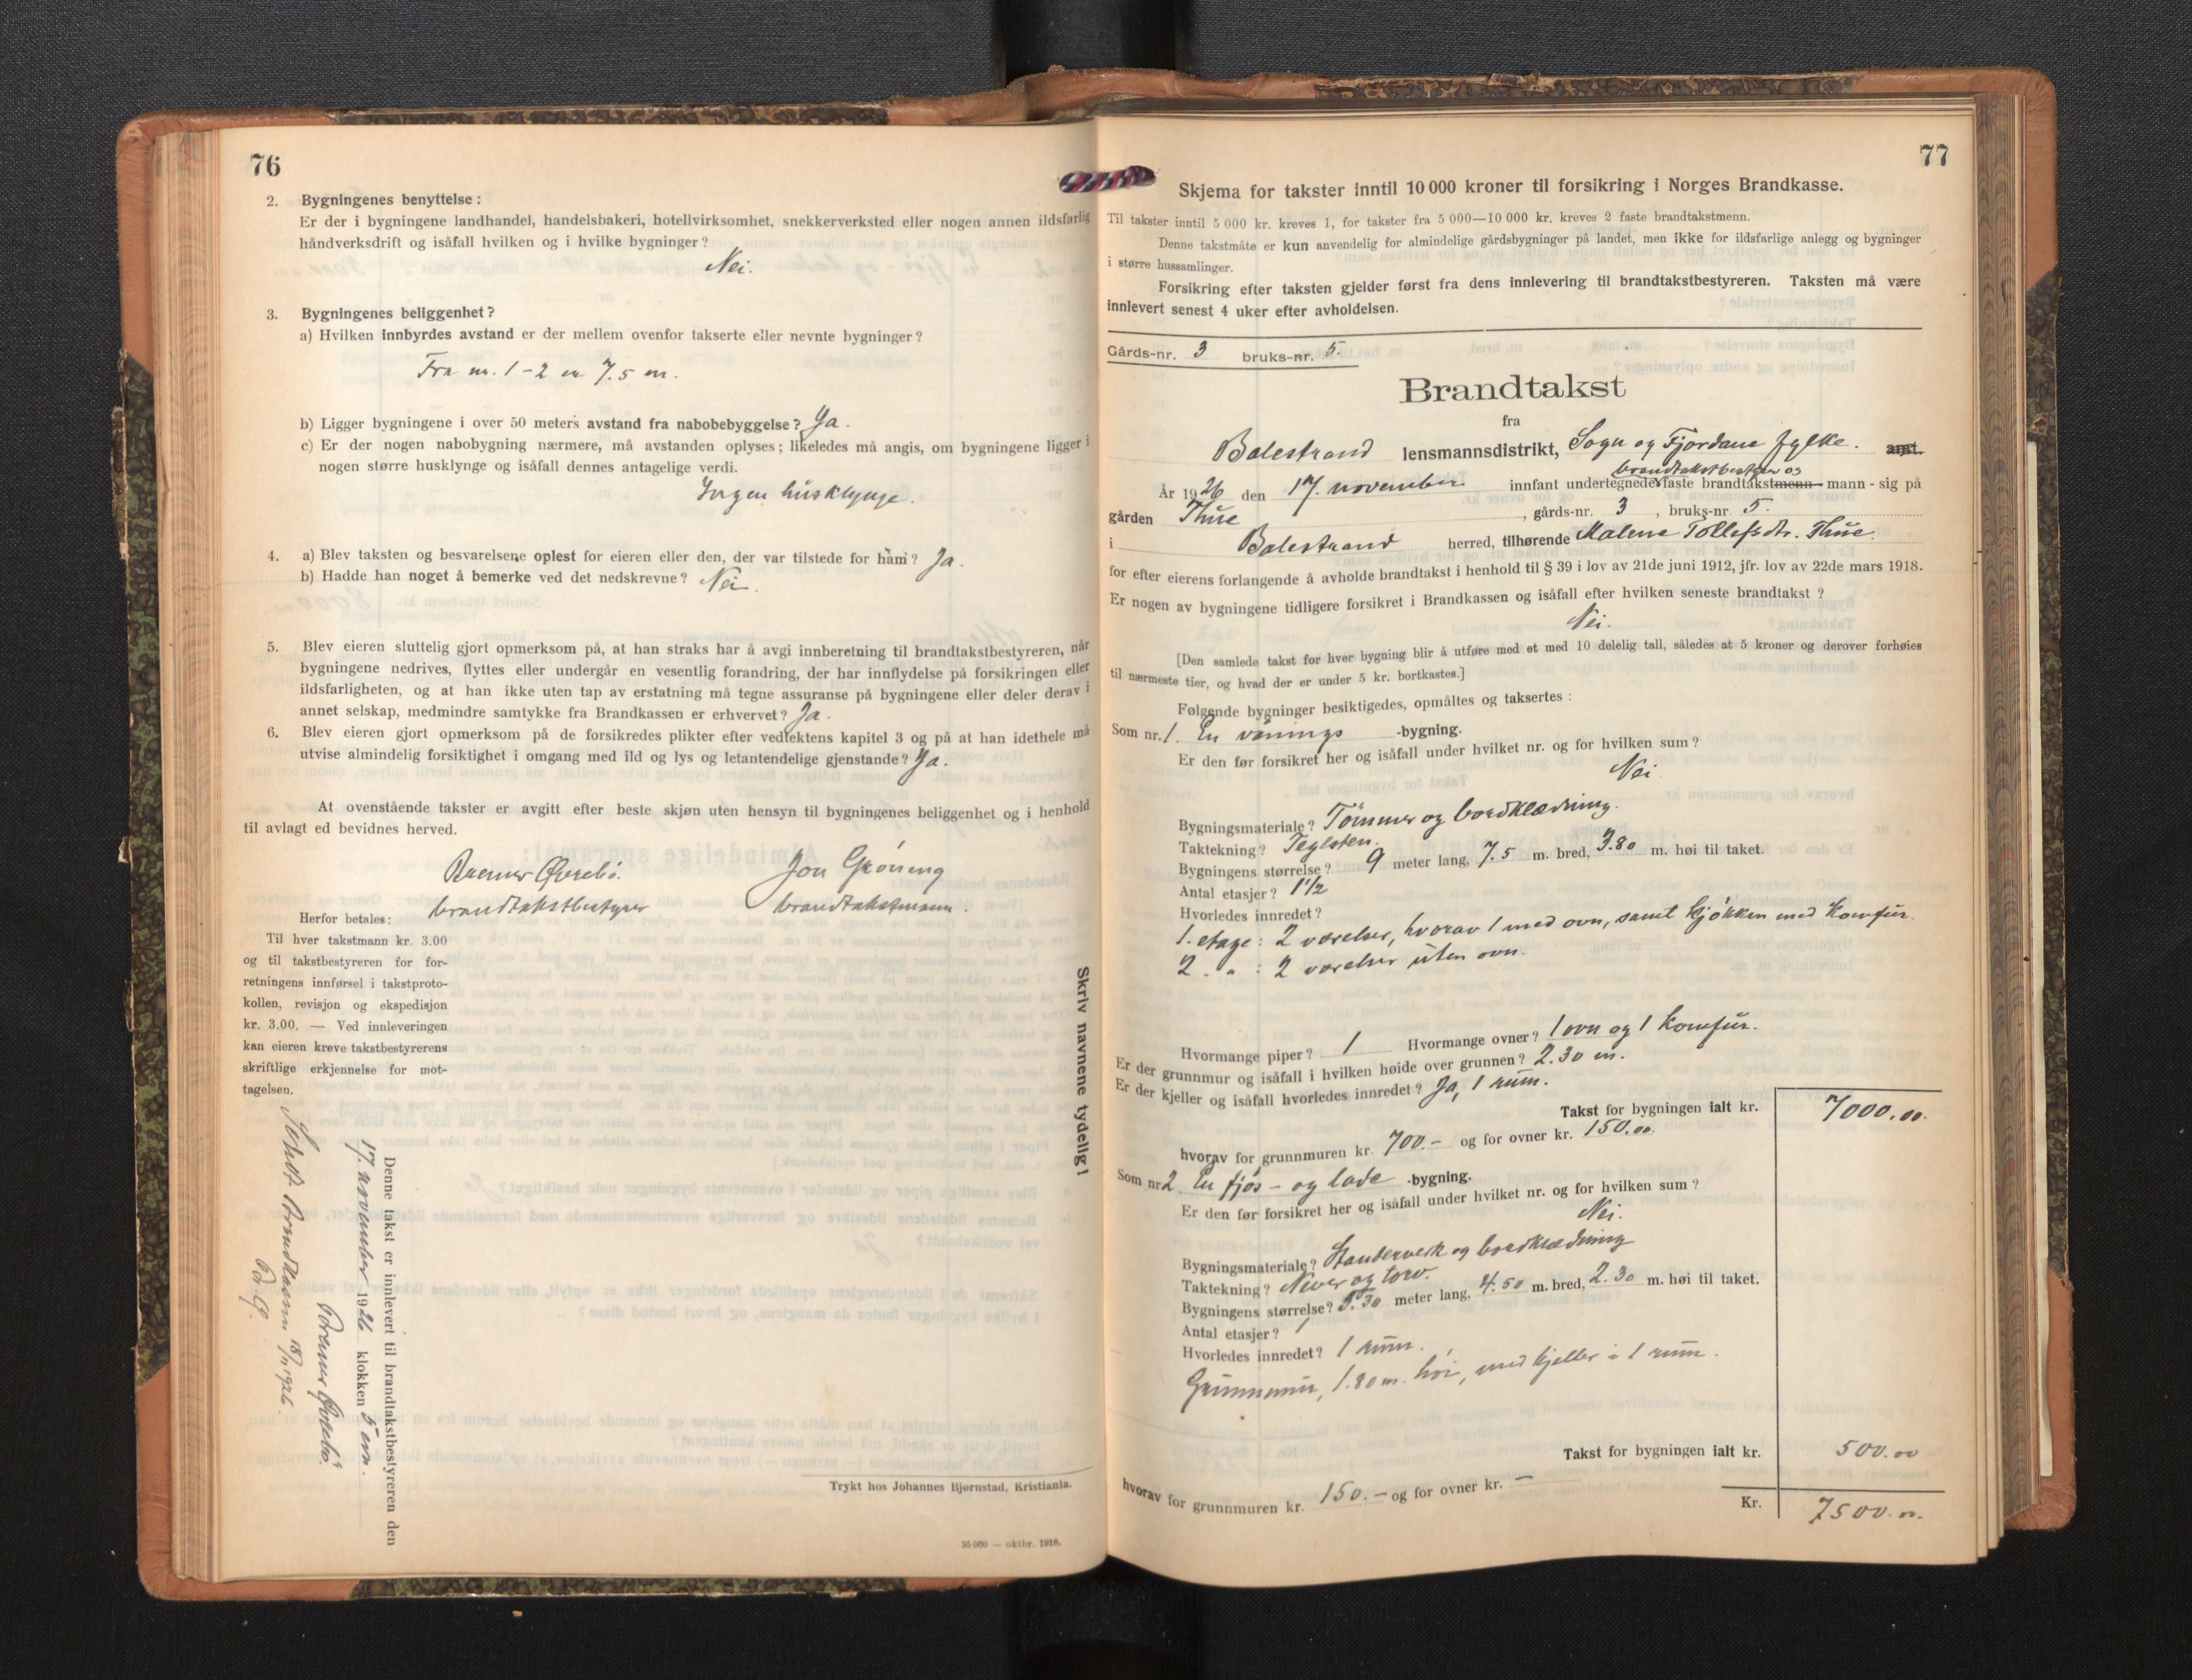 76
2. Bygningenes benyttelse:
Er der i bygningene landhandel, handelsbakeri, hotellvirksomhet, snekkerverksted eller nogen annen ildsfarlig
håndverksdrift og isåfall hvilken og i hvilke bygninger?
Nei.
3. Bygningenes beliggenhet?
a) Hvilken innbyrdes avstand er der mellem ovenfor takserte eller nevnte bygninger?
Fra nr. 1-2 er 7.5 m.
b) Ligger bygningene i over 50 meters avstand fra nabobebyggelse? Ja.
c) Er der nogen nabobygning nærmere, må avstanden oplyses; likeledes må angis, om bygningene ligger i
nogen større husklynge og isåfall dennes antagelige verdi.
Ingen husklynge.
4. a) Blev taksten og besvarelsene oplest for eieren eller den, der var tilstede for ham? Ja.
b) Hadde han noget å bemerke ved det nedskrevne? Nei.
5. Blev eieren sluttelig gjort opmerksom på, at han straks har å avgi innberetning til brandtakstbestyreren, når
bygningene nedrives, flyttes eller undergår en vesentlig forandring, der har innflydelse på forsikringen eller
ildsfarligheten, og at han ikke uten tap av erstatning må tegne assuranse på bygningene eller deler derav i
annet selskap, medmindre samtykke fra Brandkassen er erhvervet? Ja.
6. Blev eieren gjort opmerksom på de forsikredes plikter efter vedtektens kapitel 3 og på at han idethele må
utvise almindelig forsiktighet i omgang med ild og lys og letantendelige gjenstande? Ja.
At ovenstående takster er avgitt efter beste skjøn uten hensyn til bygningenes beliggenhet og i henhold
til avlagt ed bevidnes herved.
Øvrebø. Jon Grøneng
brandtakstbestyrer brandtakstmann.
Herfor betales:
Til hver takstmann kr. 3.00
og til takstbestyreren for for-
retningens innførsel i takstproto-
kollen, revisjon og ekspedisjon
kr. 3.00. — Ved innleveringen
kan eieren kreve takstbestyrerens
skriftlige erkjennelse for mot-
tagelsen.
Skriv navnene tydelig!
Denne takst er innlevert til brandtakstbestyreren den
17. november 1926 klokken 5 em.
Øvrebø.
Sendt Brandkassen 18/11 1926.
Trykt hos Johannes Bjørnstad, Kristiania.
95 000 — oktbr. 1918.
77
Skjema for takster inntil 10 000 kroner til forsikring i Norges Brandkasse.
Til takster inntil 5 000 kr. kreves 1, for takster fra 5 000—10 000 kr. kreves 2 faste brandtakstmenn.
Denne takstmåte er kun anvendelig for almindelige gårdsbygninger på landet, men ikke for ildsfarlige anlegg og bygninger
i større hussamlinger.
Forsikring efter taksten gjelder først fra dens innlevering til brandtakstbestyreren. Taksten må være
innlevert senest 4 uker efter avholdelsen.
Gårds-nr. 3 bruks-nr. 5.
Brandtakst
fra
Balestrand lensmannsdistrikt, Sogn og Fjordane fylke. amt.
brandtakstbestyrer og
År 1926 den 17. november innfant undertegnede faste brandtakstmenn - mann - sig på
gården Thue, gårds-nr. 3, bruks-nr. 5.
i Balestrand herred, tilhørende Malene Tollefsdtr. Thue.
for efter eierens forlangende å avholde brandtakst i henhold til § 39 i lov av 21de juni 1912, jfr. lov av 22de mars 1918.
Er nogen av bygningene tidligere forsikret i Brandkassen og isåfall efter hvilken seneste brandtakst?
Nei.
[Den samlede takst for hver bygning blir å utføre med et med 10 delelig tall, således at 5 kroner og derover forhøies
til nærmeste tier, og hvad der er under 5 kr. bortkastes.]
Følgende bygninger besiktigedes, opmåltes og taksertes:
Som nr. 1. En vånings -bygning.
Er den før forsikret her og isåfall under hvilket nr. og for hvilken sum?
Nei
Bygningsmateriale? Tømmer og bordklædning.
Taktekning? Teglsten.
Bygningens størrelse? 9 meter lang, 7.5 m. bred, 3.80 m. høi til taket.
Antal etasjer? 1 1/2
Hvorledes innredet?
1. etage: 2 værelser, hvorav 1 med ovn, samt kjøkken med komfur.
2. " : 2 værelser uten ovn.
Hvormange piper? 1 Hvormange ovner? 1 ovn og 1 komfur.
Er der grunnmur og isåfall i hvilken høide over grunnen? 2.30 m.
Er der kjeller og isåfall hvorledes innredet? Ja, 1 rum.
Takst for bygningen ialt kr. 7000.00.
hvorav for grunnmuren kr. 700.- og for ovner kr. 150.00.
Som nr. 2. En fjøs- og lade -bygning.
Er den før forsikret her og isåfall under hvilket nr. og for hvilken sum?
Nei.
Bygningsmateriale? Standerverk og bordklædning
Taktekning? Never og torv.
Bygningens størrelse? 5.30 meter lang, 4.50 m. bred, 2.30 m. høi til taket.
Antal etasjer? 1
Hvorledes innredet? 1 rum.
Grunnmur, 1.80 m. høi, med kjeller i 1 rum.
Takst for bygningen ialt kr. 500.00
hvorav for grunnmuren kr. 150.- og for ovner kr. —
Kr. 7500.00.